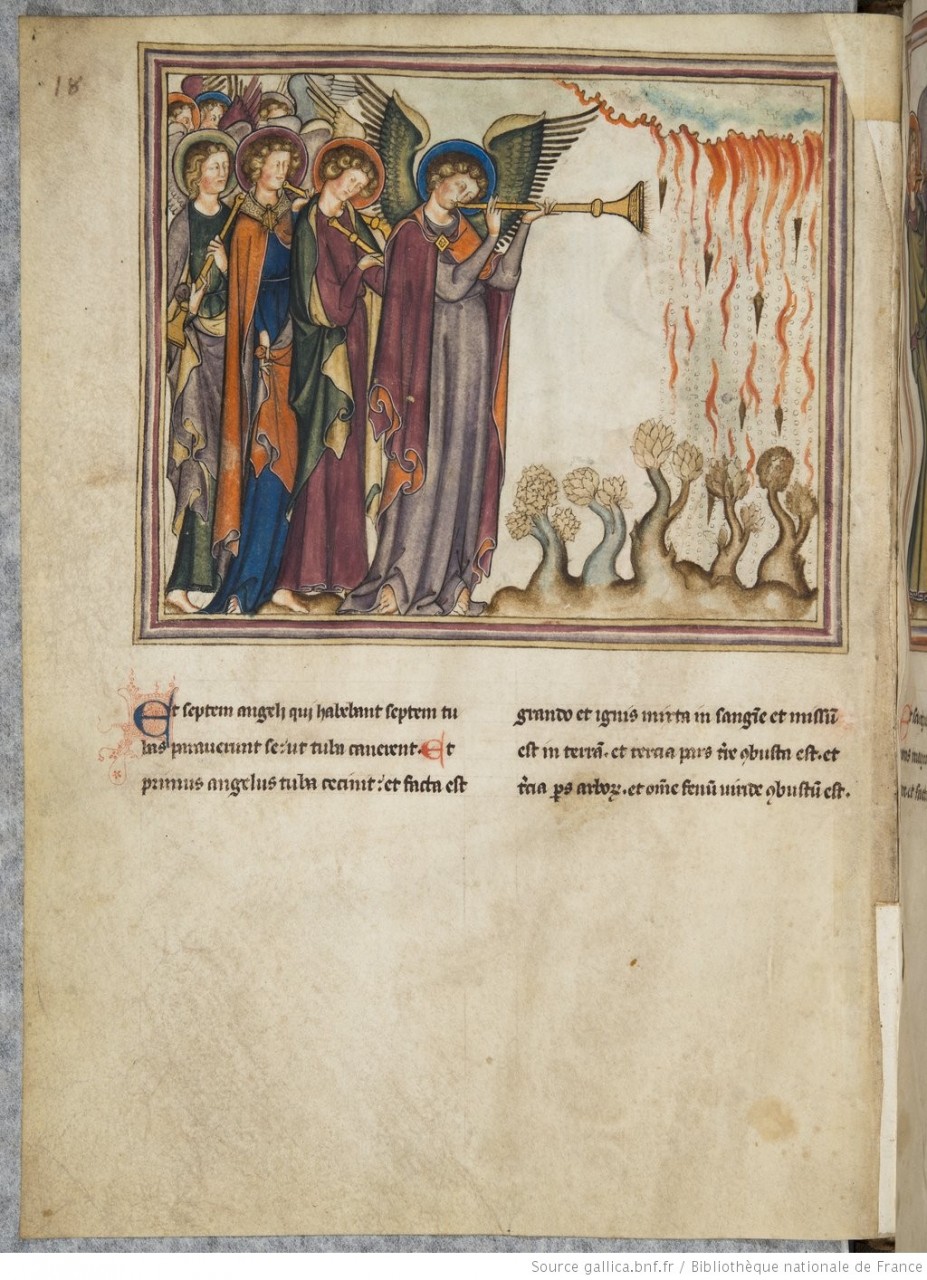 18
Et septem angeli qui habebant septem tu
bas parauerunt se: ut tuba canerent. Et
primus angelus tuba cecinit: et facta est
grando et ignis mixta in sangīe et missū
est in terrā. et tercia pars tr̄e ꝯbusta est. et
tr̄cia ꝑs arboꝝ. et om̄e fenū uiride ꝯbustū est.
Source gallica.bnf.fr / Bibliothèque nationale de France